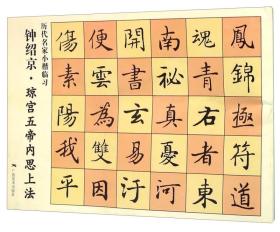 历代名家小楷临习
钟绍京·琼宫五帝内思上法
鳳錦極符道
魂青右者東
南祕真憂河
開書玄易汙
便雲為雙因
傷素陽我平